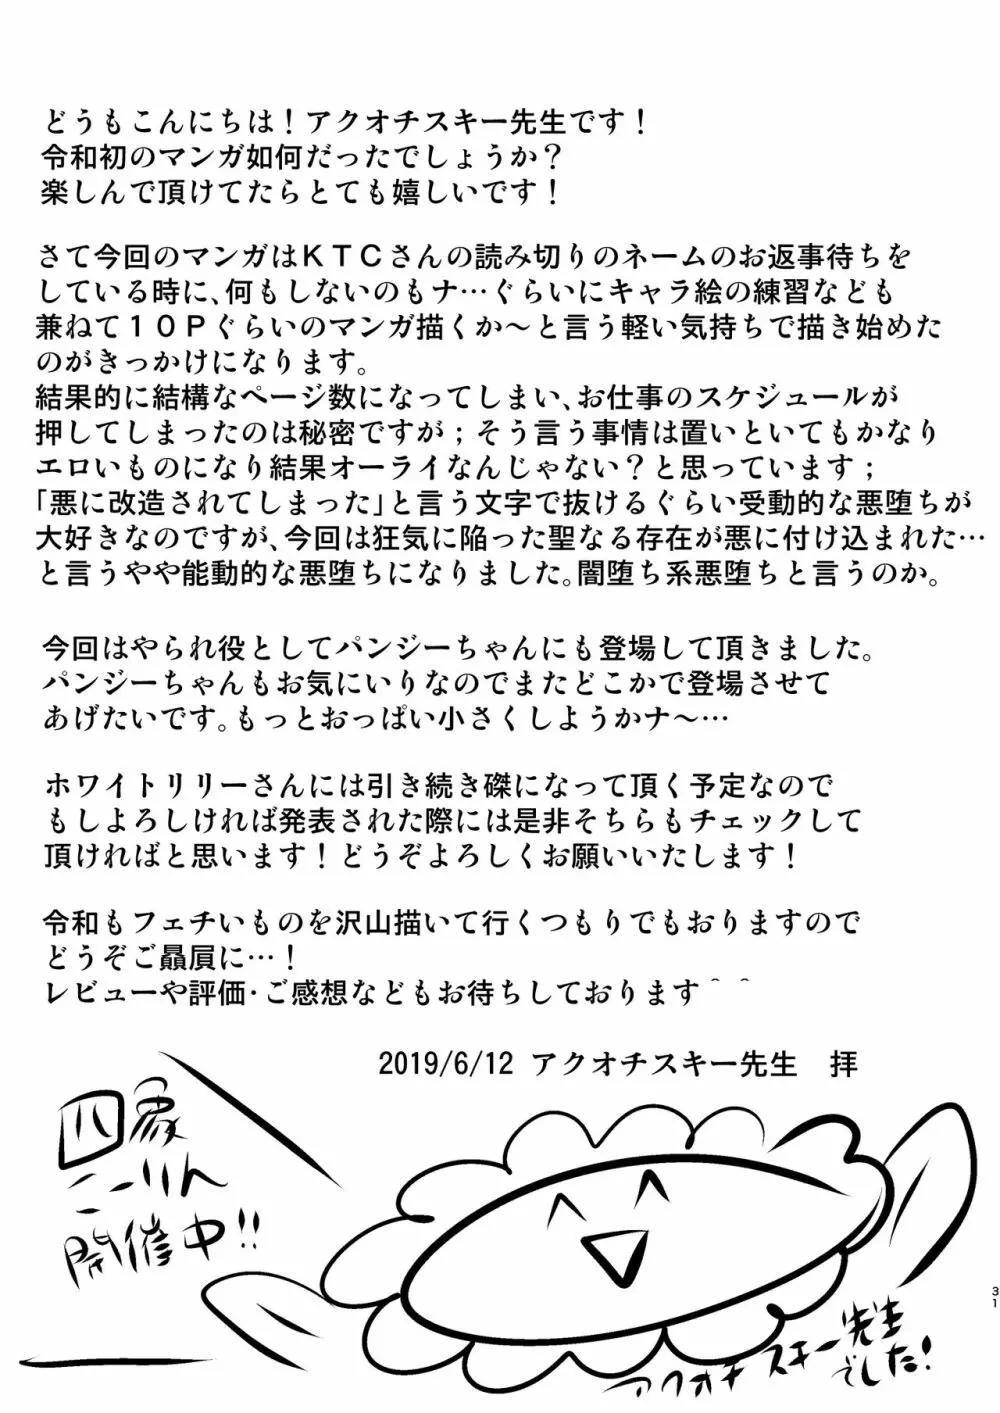 どうもこんにちは！アクオチスキー先生です！
令和初のマンガ如何だったでしょうか？
楽しんで頂けてたらとても嬉しいです！
さて今回のマンガはＫＴＣさんの読み切りのネームのお返事待ちを
している時に、何もしないのもナ…ぐらいにキャラ絵の練習なども
兼ねて１０Ｐぐらいのマンガ描くか～と言う軽い気持ちで描き始めた
のがきっかけになります。
結果的に結構なページ数になってしまい、お仕事のスケジュールが
押してしまったのは秘密ですが；そう言う事情は置いといてもかなり
エロいものになり結果オーライなんじゃない？と思っています；
「悪に改造されてしまった」と言う文字で抜けるぐらい受動的な悪堕ちが
大好きなのですが、今回は狂気に陥った聖なる存在が悪に付け込まれた…
と言うやや能動的な悪堕ちになりました。闇堕ち系悪堕ちと言うのか。
今回はやられ役としてパンジーちゃんにも登場して頂きました。
パンジーちゃんもお気にいりなのでまたどこかで登場させて
あげたいです。もっとおっぱい小さくしようかナ～…
ホワイトリリーさんには引き続き磔になって頂く予定なので
もしよろしければ発表された際には是非そちらもチェックして
頂ければと思います！どうぞよろしくお願いいたします！
令和もフェチいものを沢山描いて行くつもりでもおりますので
どうぞご贔屓に…！
レビューや評価・ご感想などもお待ちしております＾＾
2019/6/12 アクオチスキー先生　拝
開催中!!
アクオチスキー先生
でした!
31